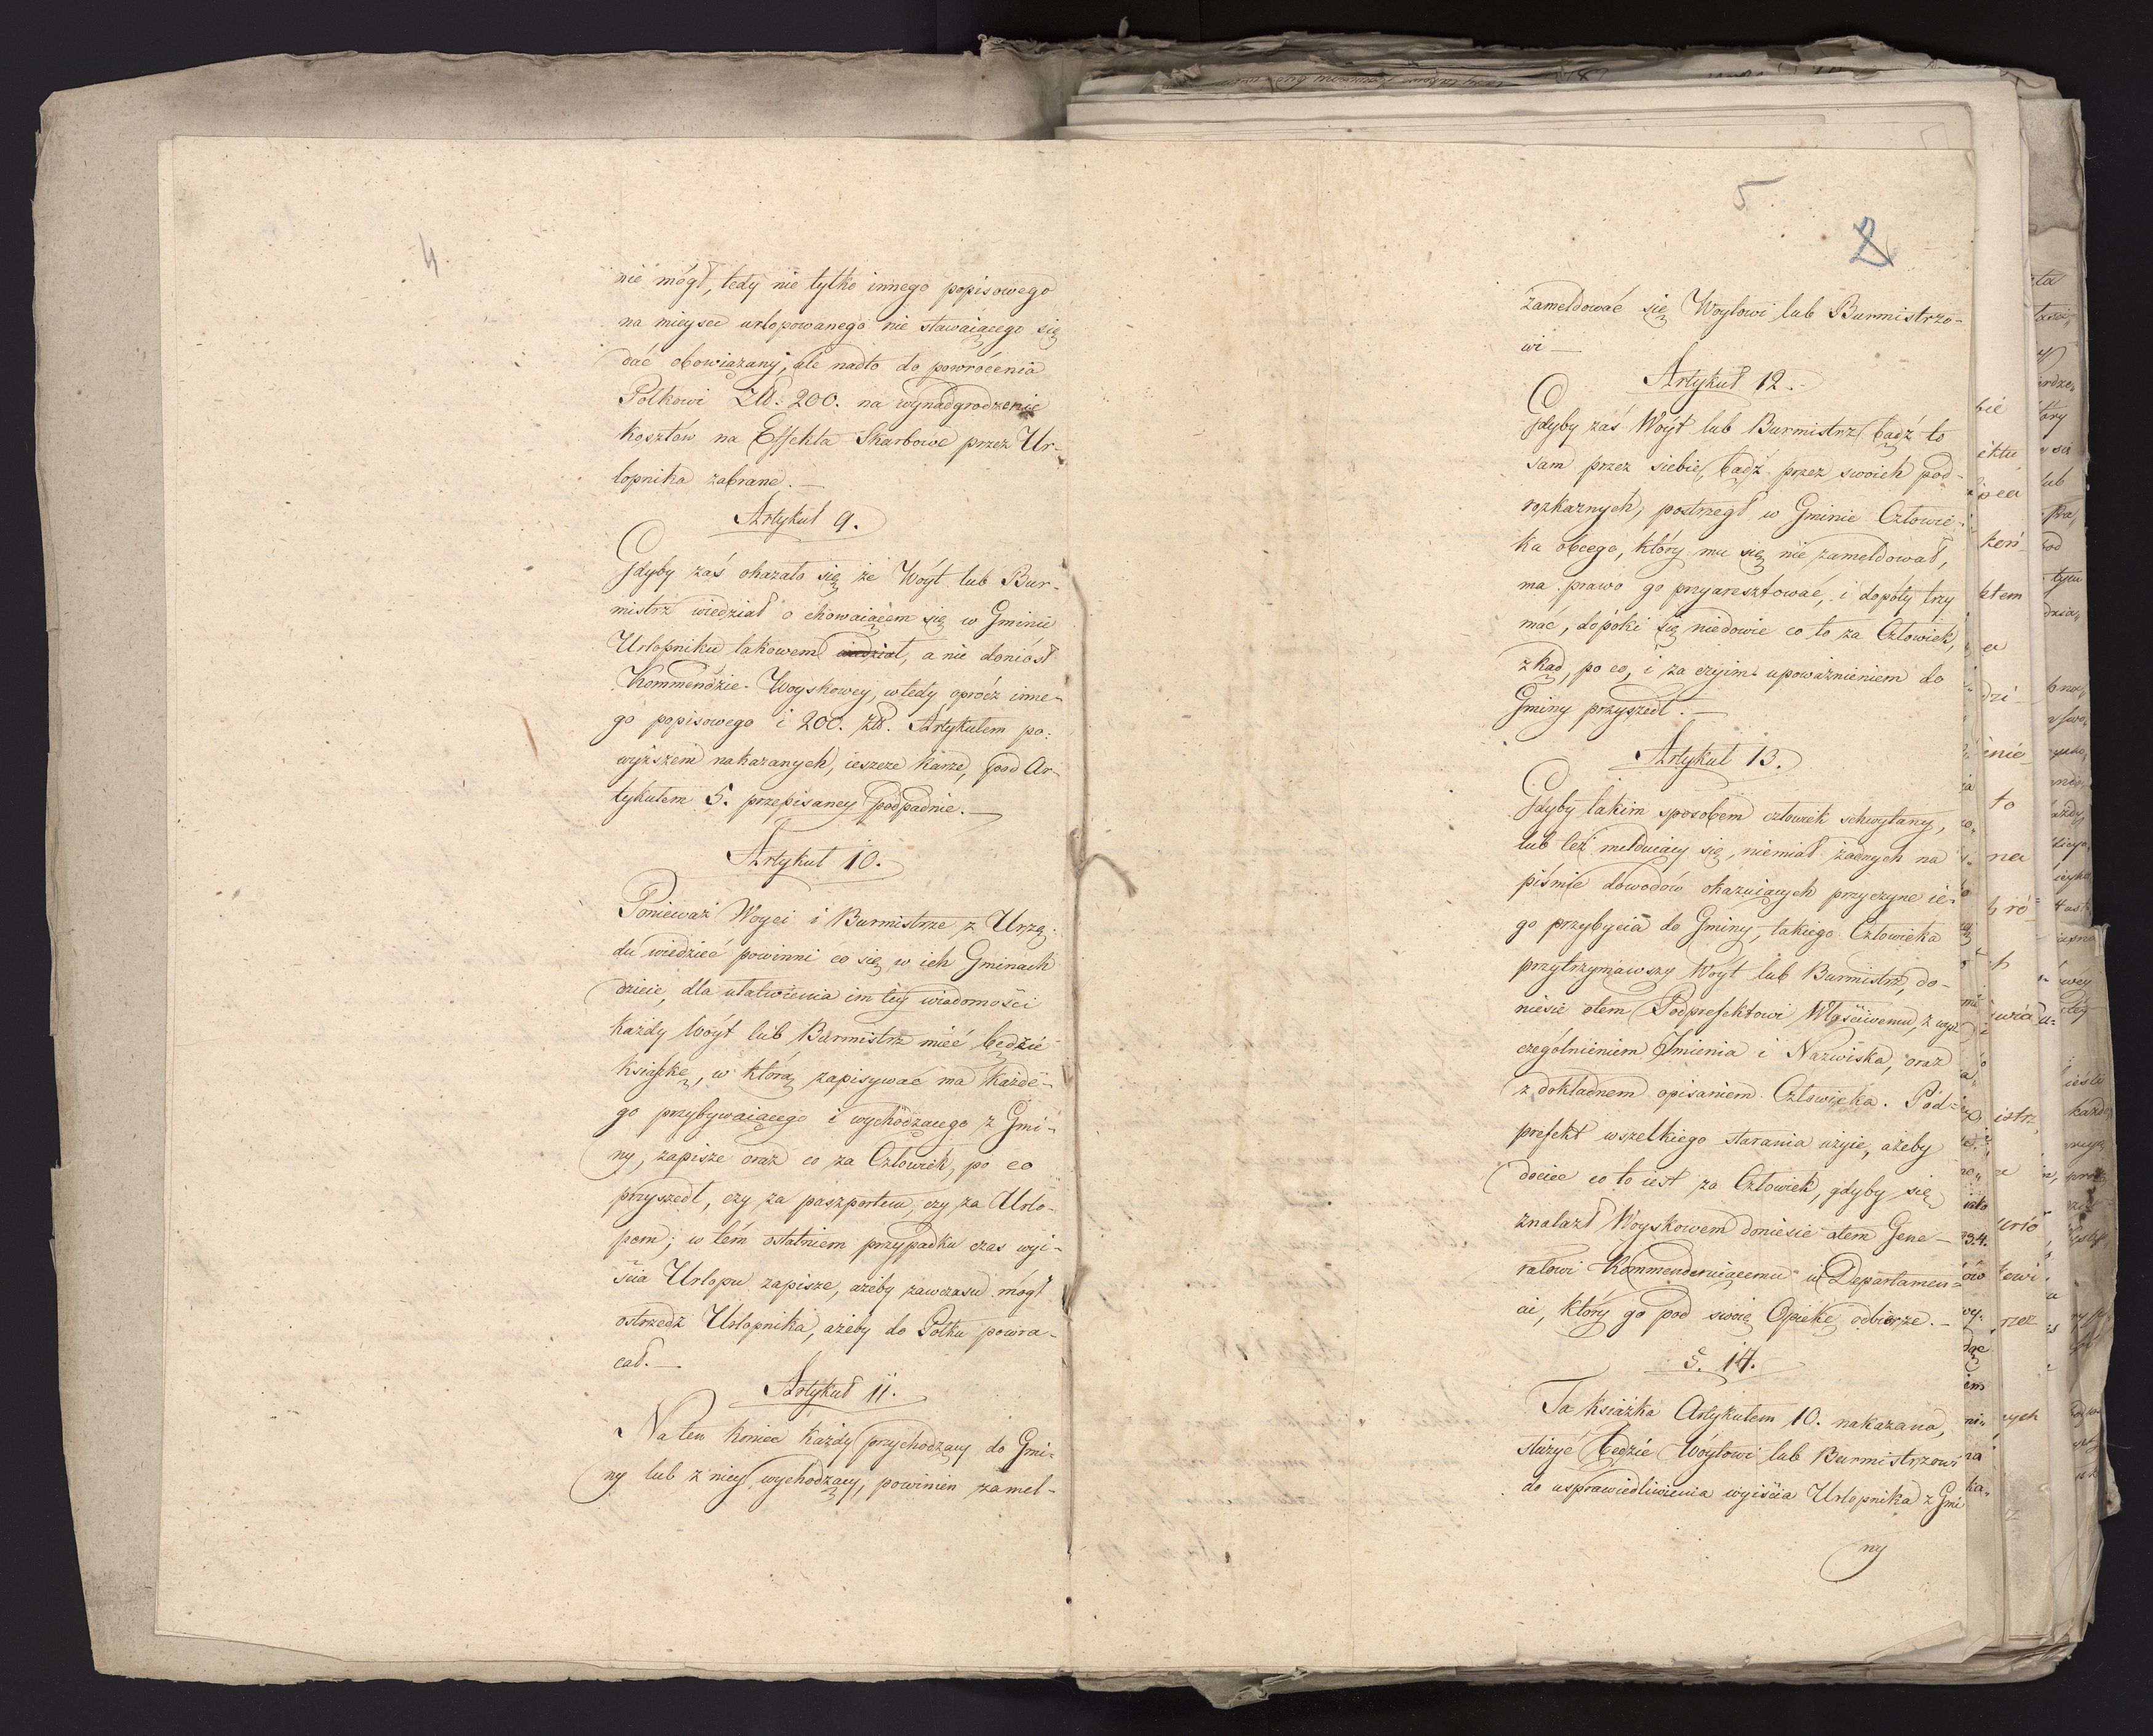 4
nie mógł, tedy nie tylko innego popisowego
na mieysce urlopowanego nie stawaiącego się
dać obowiązany, ale nadto do powrócenia
Połkowi Zł. 200. na wynadgrodzenie
kosztów na Effekta Skarbowe przez Ur-
lopnika zabrane. —
Artykuł 9.
Gdyby zaś okazało się że Wóyt lub Bur-
mistrz wiedział o chowaiącem się w Gminie
Urlopniku takowem, a nie doniósł
Kommendzie Woyskowey, wtedy oprócz inne-
go popisowego i 200. zł. Artykułem po-
wyższem nakazanych, ieszcze karze, pod Ar-
tykułem 5. przepisaney podpadnie. —
Artykuł 10.
Ponieważ Woyci i Burmistrze z Urzę-
du wiedzieć powinni co się w ich Gminach
dzieie, dla ułatwienia im tey wiadomości
każdy Wóyt lub Burmistrz mieć będzie
książkę, w którą zapisywać ma każde-
go przybywaiącego i wychodzącego z Gmi-
ny, zapisze oraz co za Człowiek, po co
przyszedł, czy za paszportem, czy za Urlo-
pem; w tém ostatniem przypadku czas wyi-
ścia Urlopu zapisze, ażeby zawczasu mógł
ostrzedz Urlopnika, ażeby do Połku powra-
cał. —
Artykuł 11.
Na ten koniec każdy przychodzący do Gmi-
ny lub z niey wychodzący, powinien zamel-
5
2
zameldować się Woytowi lub Burmistrzo-
wi —
Artykuł 12.
Gdyby zaś Woyt lub Burmistrz bądź to
sam przez siebie, bądź przez swoich pod-
rozkaznych, postrzegł w Gminie Człowie-
ka obcego, który mu się nie zameldował,
ma prawo go przyaresztować, i dopóty trzy
mać, dopóki się niedowie co to za Człowiek,
zkąd, po co, i za czyim upoważnieniem do
Gminy przyszedł. —
Artykuł 13.
Gdyby takim sposobem człowiek schwytany,
lub też melduiący się, niemiał żadnych na
piśmie dowodów okazuiących przyczyne ie-
go przybycia do Gminy, takiego Człowieka
przytrzymawszy Woyt lub Burmistrz, do-
niesie otem Podprefektowi Właściwemu, z wysz
czególnieniem Imienia i Nazwiska, oraz
z dokładnem opisaniem Człowieka. Pod-
prefekt wszelkiego starania użyie, ażeby
dociec co to iest za Człowiek, gdyby się
znalazł Woyskowem doniesie otem Gene-
rałowi Kommenderuiącemu w Departamen-
ci, który go pod swoię Opiekę odbierze. —
§. 14.
Ta książka Artykułem 10. nakazana,
służyć będzie Wóytowi lub Burmistrzowi
do usprawiedliwienia wyiścia Urlopnika z Gmi
ny